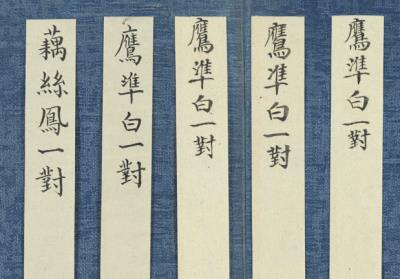 鷹準白一對
鷹準白一對
鷹準白一對
鷹準白一對
藕絲鳳一對